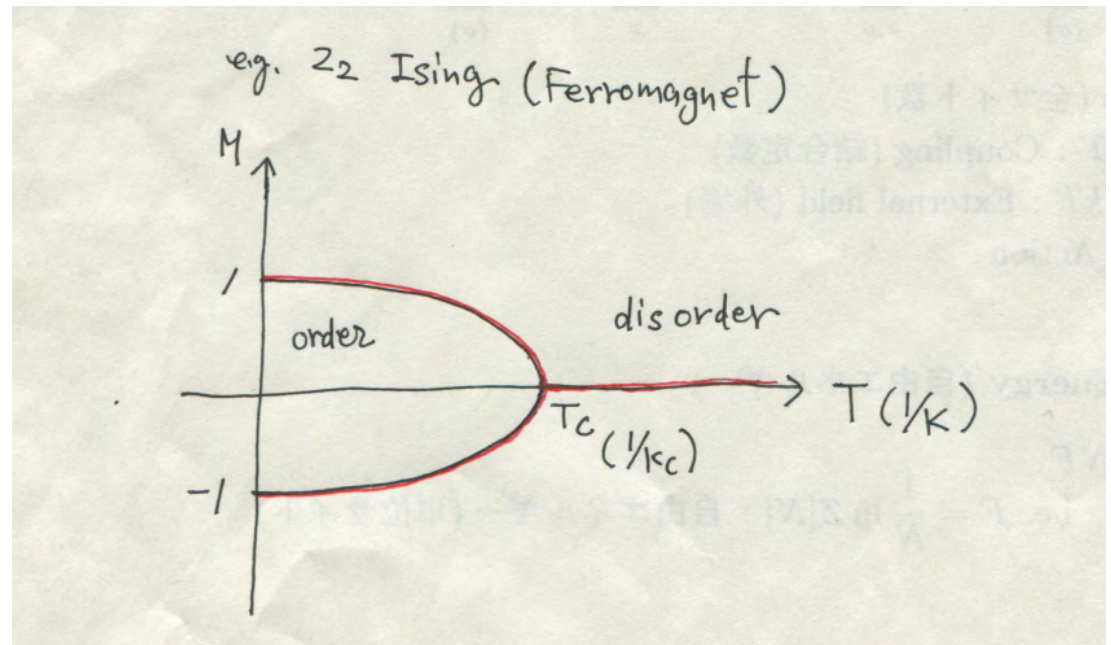 e.g. Z2 Ising (Ferromagnet)
M
1
order
disorder
Tc
(1/Kc)
T (1/K)
-1